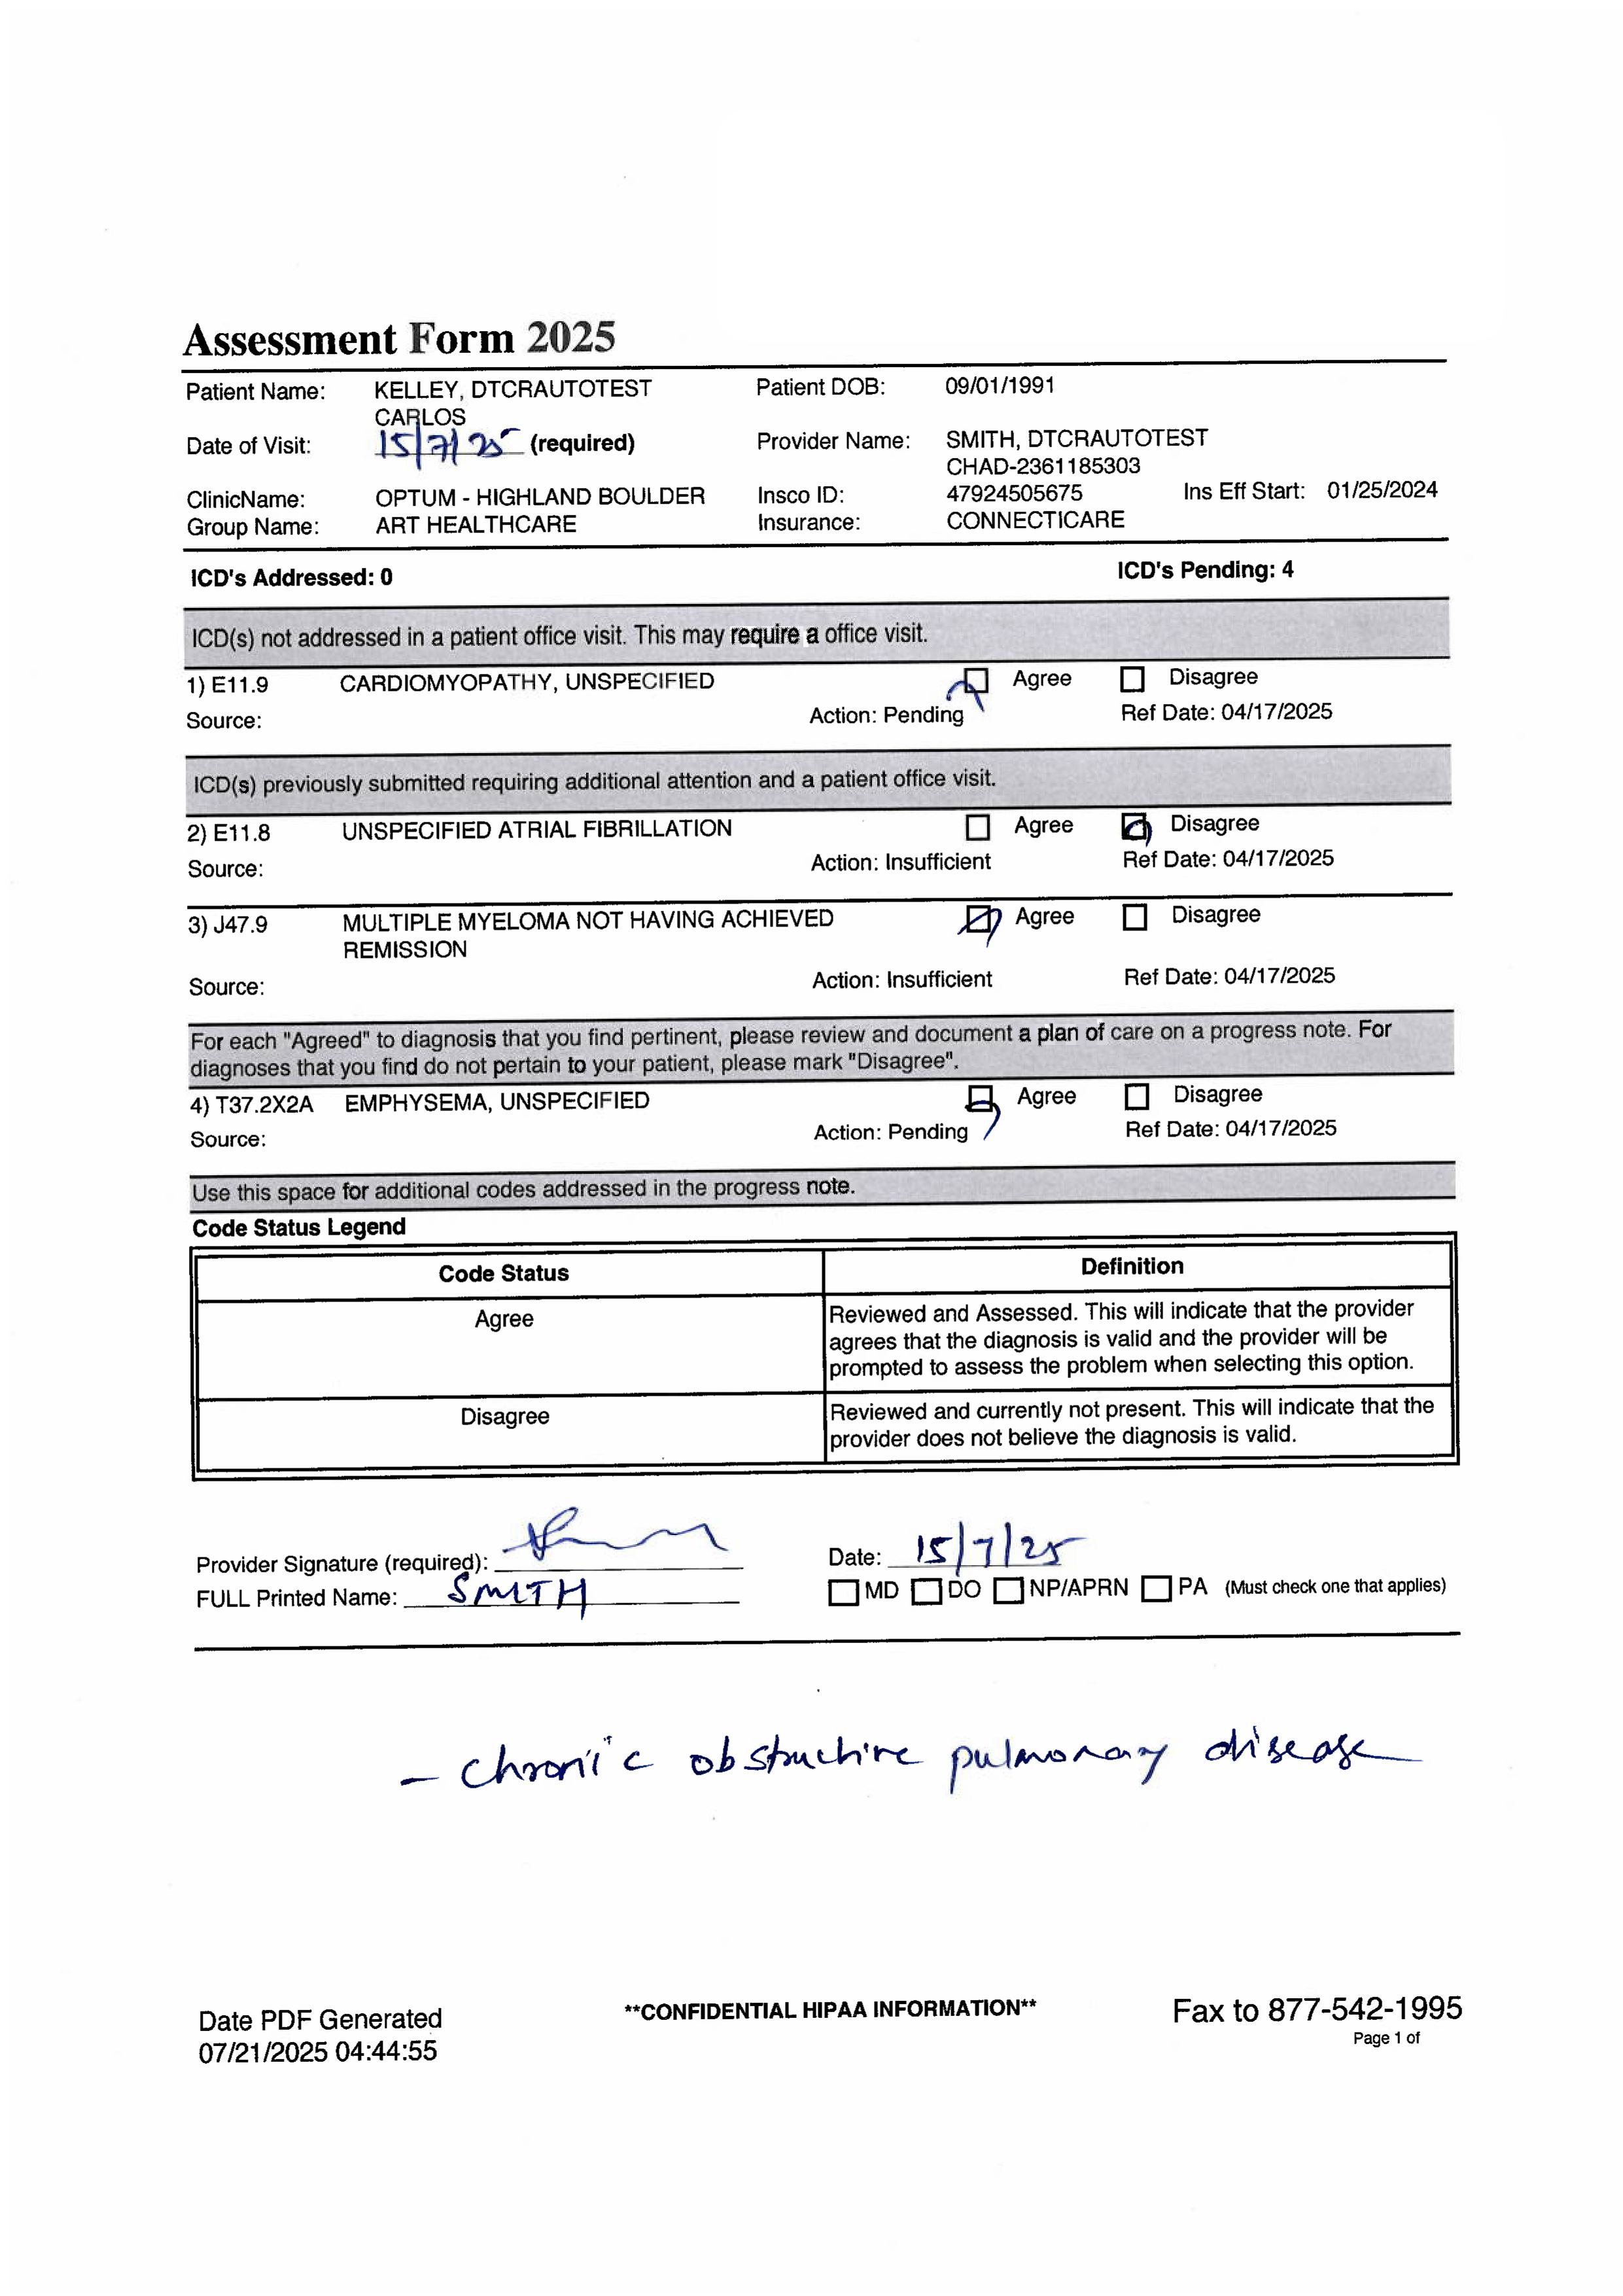 Assessment Form 2025
Patient Name: KELLEY, DTCRAUTOTEST CARLOS Patient DOB: 09/01/1991
Date of Visit: 15/7/25 (required) Provider Name: SMITH, DTCRAUTOTEST CHAD-2361185303
ClinicName: OPTUM - HIGHLAND BOULDER Insco ID: 47924505675 Ins Eff Start: 01/25/2024
Group Name: ART HEALTHCARE Insurance: CONNECTICARE
ICD's Addressed: 0 ICD's Pending: 4
ICD(s) not addressed in a patient office visit. This may require a office visit.
1) E11.9 CARDIOMYOPATHY, UNSPECIFIED Agree Disagree
Source: Action: Pending Ref Date: 04/17/2025
ICD(s) previously submitted requiring additional attention and a patient office visit.
2) E11.8 UNSPECIFIED ATRIAL FIBRILLATION Agree Disagree
Source: Action: Insufficient Ref Date: 04/17/2025
3) J47.9 MULTIPLE MYELOMA NOT HAVING ACHIEVED REMISSION Agree Disagree
Source: Action: Insufficient Ref Date: 04/17/2025
For each "Agreed" to diagnosis that you find pertinent, please review and document a plan of care on a progress note. For
diagnoses that you find do not pertain to your patient, please mark "Disagree".
4) T37.2X2A EMPHYSEMA, UNSPECIFIED Agree Disagree
Source: Action: Pending Ref Date: 04/17/2025
Use this space for additional codes addressed in the progress note.
Code Status Legend
Code Status Definition
Agree Reviewed and Assessed. This will indicate that the provider
agrees that the diagnosis is valid and the provider will be
prompted to assess the problem when selecting this option.
Disagree Reviewed and currently not present. This will indicate that the
provider does not believe the diagnosis is valid.
Provider Signature (required): Date: 15/7/25
FULL Printed Name: SMITH MD DO NP/APRN PA (Must check one that applies)
- chronic obstructive pulmonary disease
Date PDF Generated **CONFIDENTIAL HIPAA INFORMATION** Fax to 877-542-1995
07/21/2025 04:44:55 Page 1 of